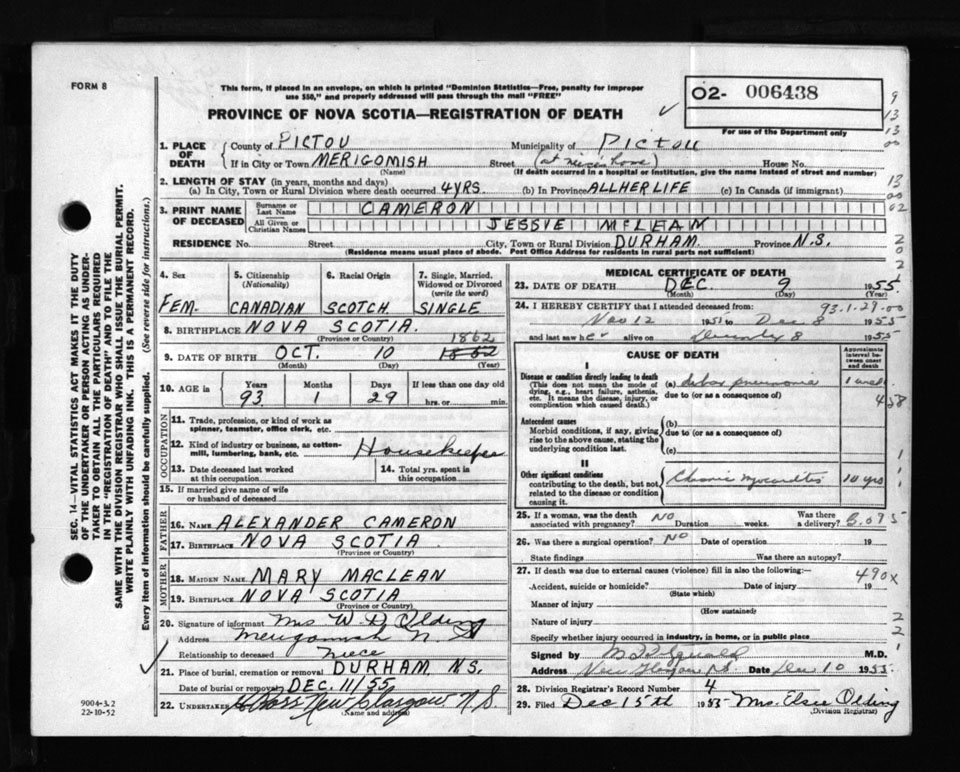 FORM 8
This form, if placed in an envelope, on which is printed "Dominion Statistics—Free, penalty for improper
use $50," and properly addressed will pass through the mail "FREE"
02- 006438
For use of the Department only
PROVINCE OF NOVA SCOTIA—REGISTRATION OF DEATH
1. PLACE OF DEATH County of PICTOU Municipality of Pictou
If in City or Town MERIGOMISH Street (at nieces home) House No.
(Name) (If death occurred in a hospital or institution, give the name instead of street and number)
2. LENGTH OF STAY (in years, months and days)
(a) In City, Town or Rural Division where death occurred 4 YRS. (b) In Province ALL HER LIFE (c) In Canada (if immigrant)
3. PRINT NAME OF DECEASED Surname or Last Name CAMERON
All Given or Christian Names JESSIE McLEAN
RESIDENCE No. Street City, Town or Rural Division DURHAM. Province N.S.
(Residence means usual place of abode. Post Office Address for residents in rural parts not sufficient)
4. Sex 5. Citizenship (Nationality) 6. Racial Origin 7. Single, Married, Widowed or Divorced (write the word)
FEM. CANADIAN SCOTCH SINGLE
8. BIRTHPLACE NOVA SCOTIA.
(Province or Country)
1862
9. DATE OF BIRTH OCT. 10 1852
(Month) (Day) (Year)
10. AGE in Years Months Days If less than one day old
93 1 29 hrs. or min.
OCCUPATION
11. Trade, profession, or kind of work as spinner, teamster, office clerk, etc.
12. Kind of industry or business, as cotton-mill, lumbering, bank, etc. Housekeeper
13. Date deceased last worked at this occupation 14. Total yrs. spent in this occupation
15. If married give name of wife or husband of deceased
FATHER
16. NAME ALEXANDER CAMERON
17. BIRTHPLACE NOVA SCOTIA
(Province or Country)
MOTHER
18. MAIDEN NAME MARY MACLEAN
19. BIRTHPLACE NOVA SCOTIA
(Province or Country)
20. Signature of informant Mrs W. D. Olding
Address Merigomish N.S
Relationship to deceased Niece
21. Place of burial, cremation or removal DURHAM, N.S.
Date of burial or removal DEC. 11/55
22. Undertaker New Glasgow N.S.
(Name and address)
9004-3.2
22-10-52
MEDICAL CERTIFICATE OF DEATH
23. DATE OF DEATH DEC. 9 1955
(Month) (Day) (Year)
24. I HEREBY CERTIFY that I attended deceased from: 93.1.29.00
Nov 12 1951 to Dec 8 1955
and last saw her alive on 8 1955
CAUSE OF DEATH
Approximate interval between onset and death
I
Disease or condition directly leading to death
(This does not mean the mode of dying, e.g., heart failure, asthenia, etc. It means the disease, injury, or complication which caused death.)
(a) lobar pneumonia 1 week
due to (or as a consequence of) 458
Antecedent causes
Morbid conditions, if any, giving rise to the above cause, stating the underlying condition last.
(b)
due to (or as a consequence of)
(c)
II
Other significant conditions
contributing to the death, but not related to the disease or condition causing it.
Chronic myocarditis 10 yrs
25. If a woman, was the death associated with pregnancy? NO Duration weeks. Was there a delivery?
26. Was there a surgical operation? NO Date of operation 19
State findings Was there an autopsy?
27. If death was due to external causes (violence) fill in also the following:— 490X
Accident, suicide or homicide? Date of injury 19
(State which)
Manner of injury
(How sustained)
Nature of injury
Specify whether injury occurred in industry, in home, or in public place
Signed by M.D.
Address New Glasgow N.S. Date Dec 10 1955.
28. Division Registrar's Record Number 4
29. Filed Dec 15th 1955 Mrs. Elsie Olding
(Division Registrar)
SEC. 14—VITAL STATISTICS ACT MAKES IT THE DUTY
OF THE UNDERTAKER OR PERSON ACTING AS UNDER-
TAKER TO OBTAIN ALL THE PARTICULARS REQUIRED
IN THE "REGISTRATION OF DEATH" AND TO FILE THE
SAME WITH THE DIVISION REGISTRAR WHO SHALL ISSUE THE BURIAL PERMIT.
WRITE PLAINLY WITH UNFADING INK. THIS IS A PERMANENT RECORD.
Every item of information should be carefully supplied. (See reverse side for instructions.)